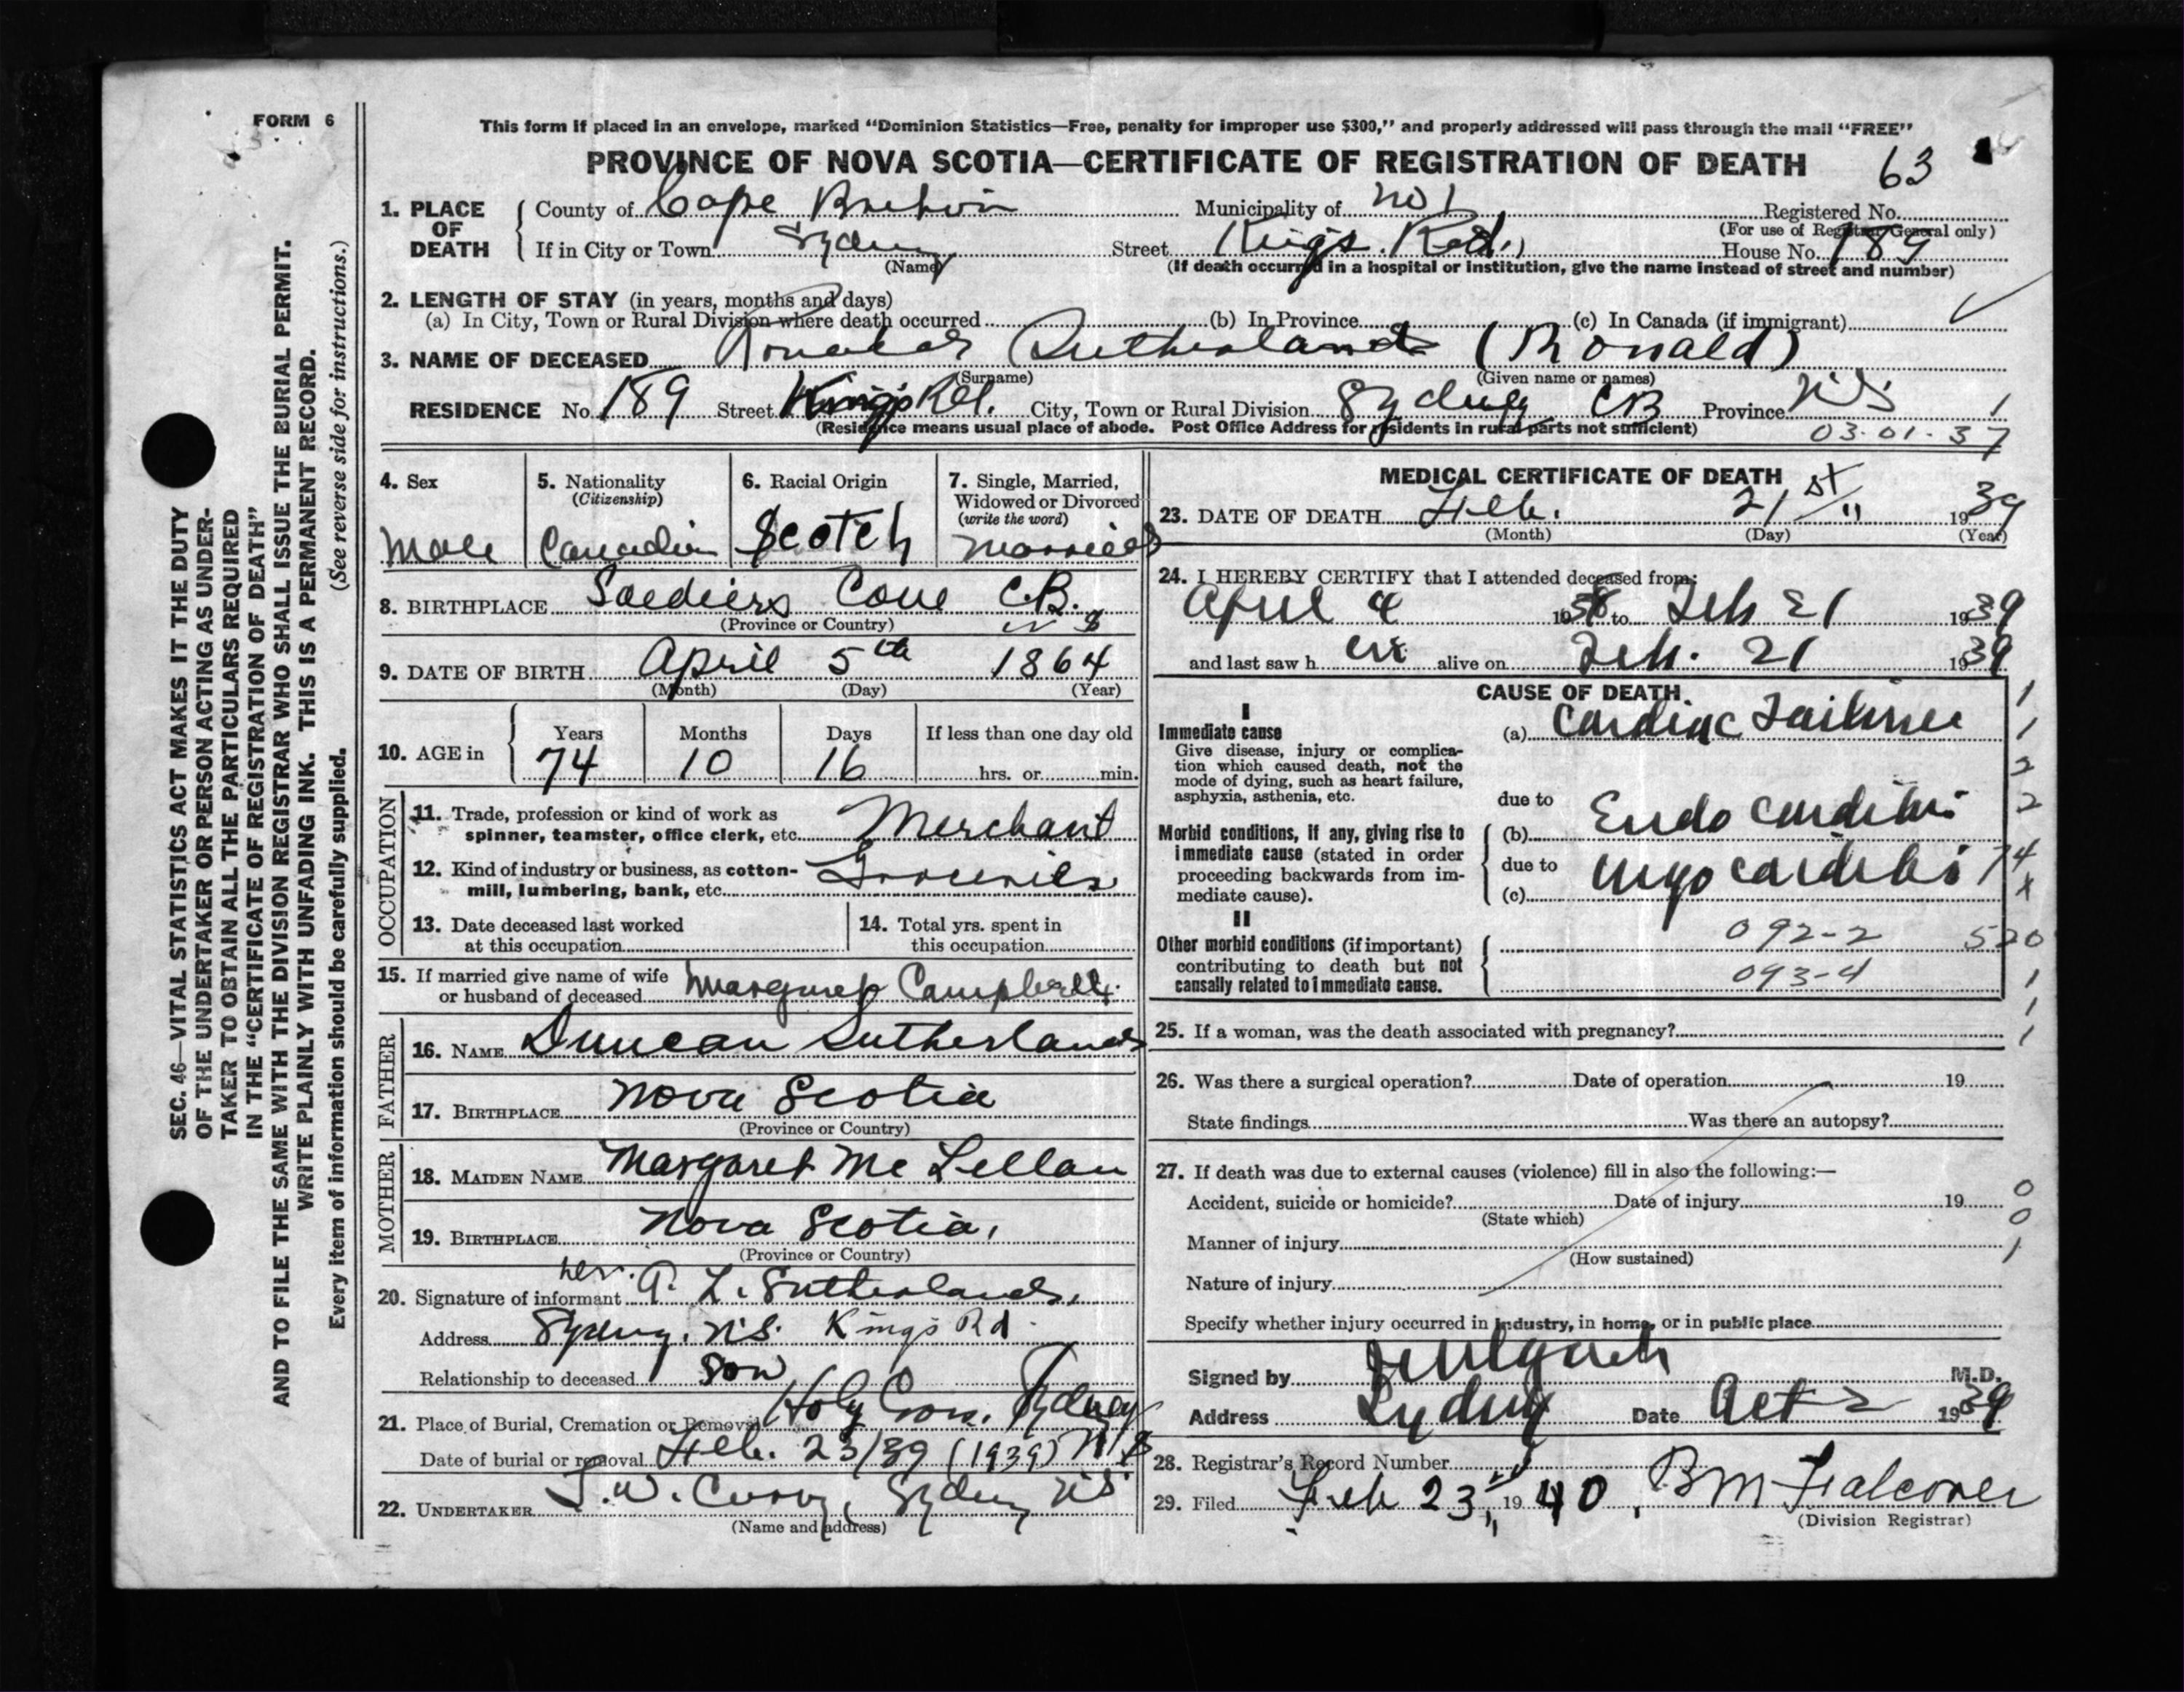 FORM 6
This form if placed in an envelope, marked "Dominion Statistics—Free, penalty for improper use $300," and properly addressed will pass through the mail "FREE"
PROVINCE OF NOVA SCOTIA—CERTIFICATE OF REGISTRATION OF DEATH 63
1. PLACE OF DEATH
County of Cape Breton Municipality of No 1 Registered No.
(For use of Registrar General only)
If in City or Town Sydney Street Kings Rd. House No. 189
(Name) (If death occurred in a hospital or institution, give the name instead of street and number)
2. LENGTH OF STAY (in years, months and days)
(a) In City, Town or Rural Division where death occurred (b) In Province (c) In Canada (if immigrant)
3. NAME OF DECEASED Ronald Sutherland (Ronald)
(Surname) (Given name or names)
RESIDENCE No. 189 Street Kings Rd. City, Town or Rural Division Sydney CB Province NS 1
(Residence means usual place of abode. Post Office Address for residents in rural parts not sufficient) 03.01.37
4. Sex
Male
5. Nationality
(Citizenship)
Canadian
6. Racial Origin
Scotch
7. Single, Married,
Widowed or Divorced
(write the word)
Married
8. BIRTHPLACE Soldiers Cove C.B.
(Province or Country) N S
9. DATE OF BIRTH April 5th 1864
(Month) (Day) (Year)
10. AGE in
Years Months Days If less than one day old
74 10 16 hrs. or min.
OCCUPATION
11. Trade, profession or kind of work as
spinner, teamster, office clerk, etc. Merchant
12. Kind of industry or business, as cotton-
mill, lumbering, bank, etc. Groceries
13. Date deceased last worked
at this occupation
14. Total yrs. spent in
this occupation
15. If married give name of wife
or husband of deceased Margaret Campbell
FATHER
16. NAME Duncan Sutherland
17. BIRTHPLACE Nova Scotia
(Province or Country)
MOTHER
18. MAIDEN NAME Margaret Mc Lellan
19. BIRTHPLACE Nova Scotia,
(Province or Country)
20. Signature of informant A. L. Sutherland,
Address Sydney, N.S. Kings Rd.
Relationship to deceased Son
21. Place of Burial, Cremation or Removal Holy Cross, Sydney
Date of burial or removal Feb. 23/39 (1939) N S
22. UNDERTAKER T. W. Curry, Sydney NS
(Name and address)
MEDICAL CERTIFICATE OF DEATH
23. DATE OF DEATH Feb. 21st 1939
(Month) (Day) (Year)
24. I HEREBY CERTIFY that I attended deceased from:
April 4 1938 to Feb 21 1939
and last saw h im alive on Feb. 21 1939
CAUSE OF DEATH
I
Immediate cause
Give disease, injury or complica-
tion which caused death, not the
mode of dying, such as heart failure,
asphyxia, asthenia, etc.
(a) Cardiac Failure
due to
Morbid conditions, if any, giving rise to
immediate cause (stated in order
proceeding backwards from im-
mediate cause).
(b) Endo carditis
due to
(c) Myo carditis
II
Other morbid conditions (if important)
contributing to death but not
causally related to immediate cause.
092-2
093-4
1
1
2
2
74
x
520
1
1
1
25. If a woman, was the death associated with pregnancy?
26. Was there a surgical operation? Date of operation 19
State findings Was there an autopsy?
27. If death was due to external causes (violence) fill in also the following:—
Accident, suicide or homicide? Date of injury 19
(State which)
Manner of injury
(How sustained)
Nature of injury
Specify whether injury occurred in industry, in home, or in public place
0
0
1
Signed by M.D.
Address Sydney Date Oct 2 1939
28. Registrar's Record Number
29. Filed Feb 23, 1940, B M Falconer
(Division Registrar)
SEC. 46—VITAL STATISTICS ACT MAKES IT THE DUTY
OF THE UNDERTAKER OR PERSON ACTING AS UNDER-
TAKER TO OBTAIN ALL THE PARTICULARS REQUIRED
IN THE "CERTIFICATE OF REGISTRATION OF DEATH"
AND TO FILE THE SAME WITH THE DIVISION REGISTRAR WHO SHALL ISSUE THE BURIAL PERMIT.
WRITE PLAINLY WITH UNFADING INK. THIS IS A PERMANENT RECORD.
Every item of information should be carefully supplied. (See reverse side for instructions.)